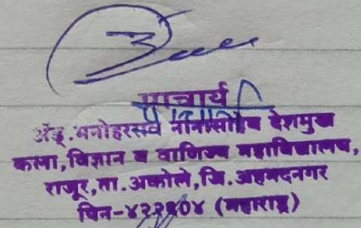 प्राचार्य
अ‍ॅड.मनोहरराव नानासाहेब देशमुख
कला,विज्ञान व वाणिज्य महाविद्यालय,
राजूर,ता.अकोले,जि.अहमदनगर
पिन-४२२६०४ (महाराष्ट्र)